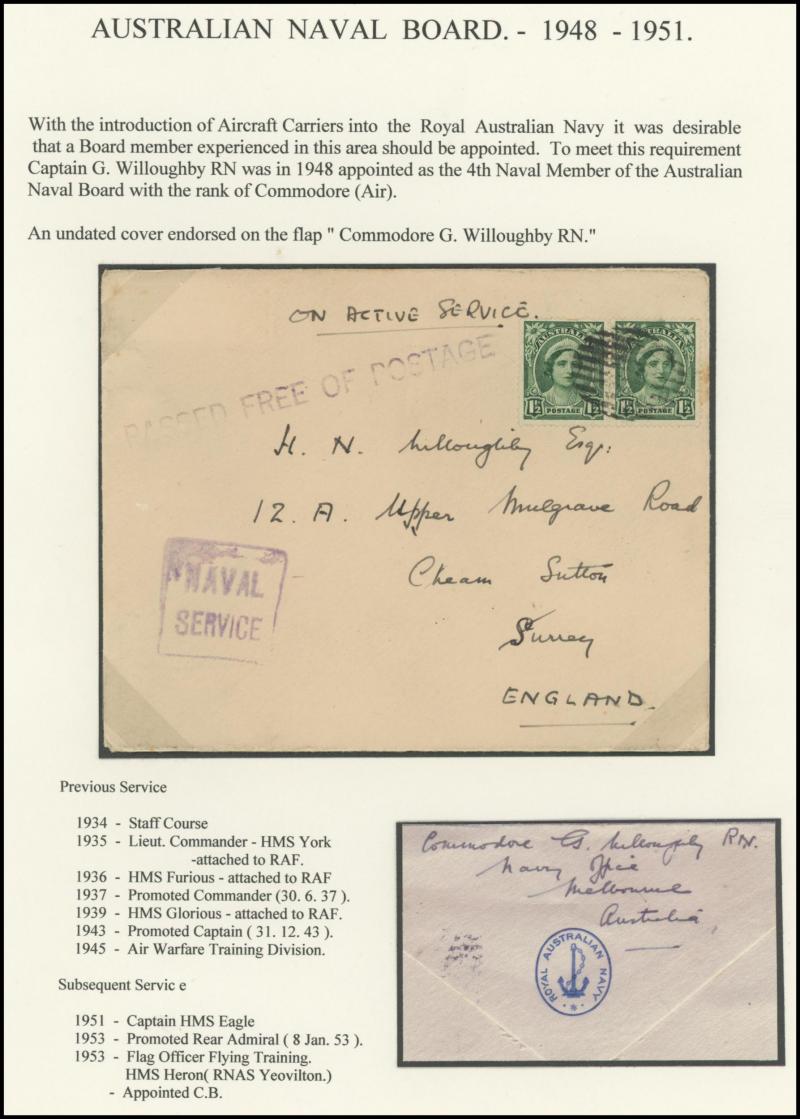 AUSTRALIAN NAVAL BOARD. - 1948 - 1951.
With the introduction of Aircraft Carriers into the Royal Australian Navy it was desirable
that a Board member experienced in this area should be appointed. To meet this requirement
Captain G. Willoughby RN was in 1948 appointed as the 4th Naval Member of the Australian
Naval Board with the rank of Commodore (Air).
An undated cover endorsed on the flap " Commodore G. Willoughby RN."
ON ACTIVE SERVICE.
PASSED FREE OF POSTAGE
AUSTRALIA AUSTRALIA
1½ POSTAGE 1½ 1½ POSTAGE 1½
H. N. Willoughby Esq:
12. A. Upper Mulgrave Road
Cheam Sutton
Surrey
ENGLAND.
NAVAL
SERVICE
Previous Service
1934 - Staff Course
1935 - Lieut. Commander - HMS York
-attached to RAF.
1936 - HMS Furious - attached to RAF
1937 - Promoted Commander (30. 6. 37 ).
1939 - HMS Glorious - attached to RAF.
1943 - Promoted Captain ( 31. 12. 43 ).
1945 - Air Warfare Training Division.
Subsequent Servic e
1951 - Captain HMS Eagle
1953 - Promoted Rear Admiral ( 8 Jan. 53 ).
1953 - Flag Officer Flying Training.
HMS Heron( RNAS Yeovilton.)
- Appointed C.B.
Commodore G. Willoughby RN.
Navy Office
Melbourne
Australia
ROYAL AUSTRALIAN NAVY